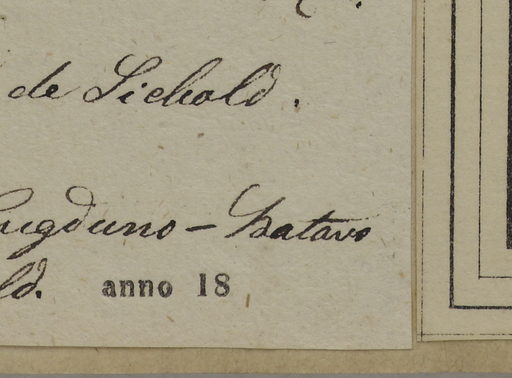 de Siebold.
Lugduno-Batavo
ld. anno 18